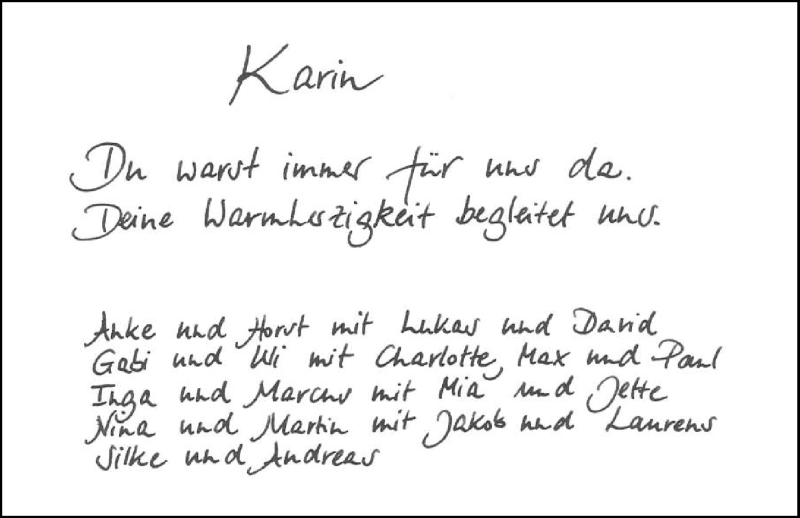 Karin
Du warst immer für uns da.
Deine Warmherzigkeit begleitet uns.
Anke und Horst mit Lukas und David
Gabi und Uli mit Charlotte, Max und Paul
Inga und Marcus mit Mia und Jette
Nina und Martin mit Jakob und Laurens
Silke und Andreas